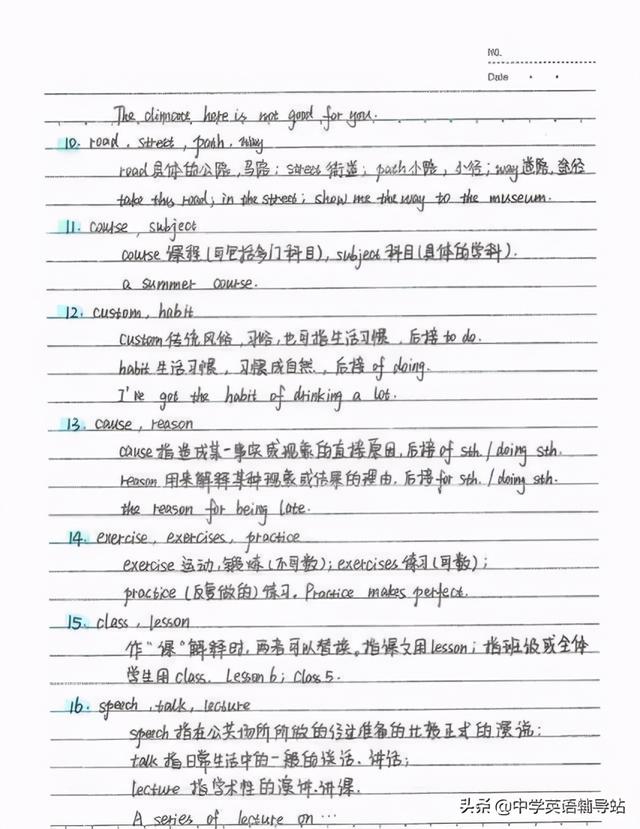 No.
Date
The climate here is not good for you.
10. road, street, path, way
road具体的公路,马路;street街道;path小路,小径;way道路,途径
take this road; in the street; show me the way to the museum.
11. course, subject
course 课程(可包括多门科目), subject 科目(具体的学科).
a summer course.
12. custom, habit
custom传统风俗,习俗,也可指生活习惯,后接to do.
habit 生活习惯,习惯成自然,后接of doing.
I've got the habit of drinking a lot.
13. cause, reason
cause指造成某一事实或现象的直接原因,后接of sth./doing sth.
reason 用来解释某种现象或结果的理由,后接for sth./doing sth.
the reason for being late.
14. exercise, exercises, practice
exercise 运动,锻炼(不可数);exercises 练习(可数);
practice (反复做的)练习。Practice makes perfect.
15. class, lesson
作"课"解释时,两者可以替换。指课文用lesson;指班级或全体
学生用class. Lesson 6; Class 5.
16. speech, talk, lecture
speech指在公共场所所做的经过准备的比较正式的演说;
talk指日常生活中的一般的谈话、讲话;
lecture 指学术性的演讲.讲课.
A series of lecture on…
头条@中学英语辅导站